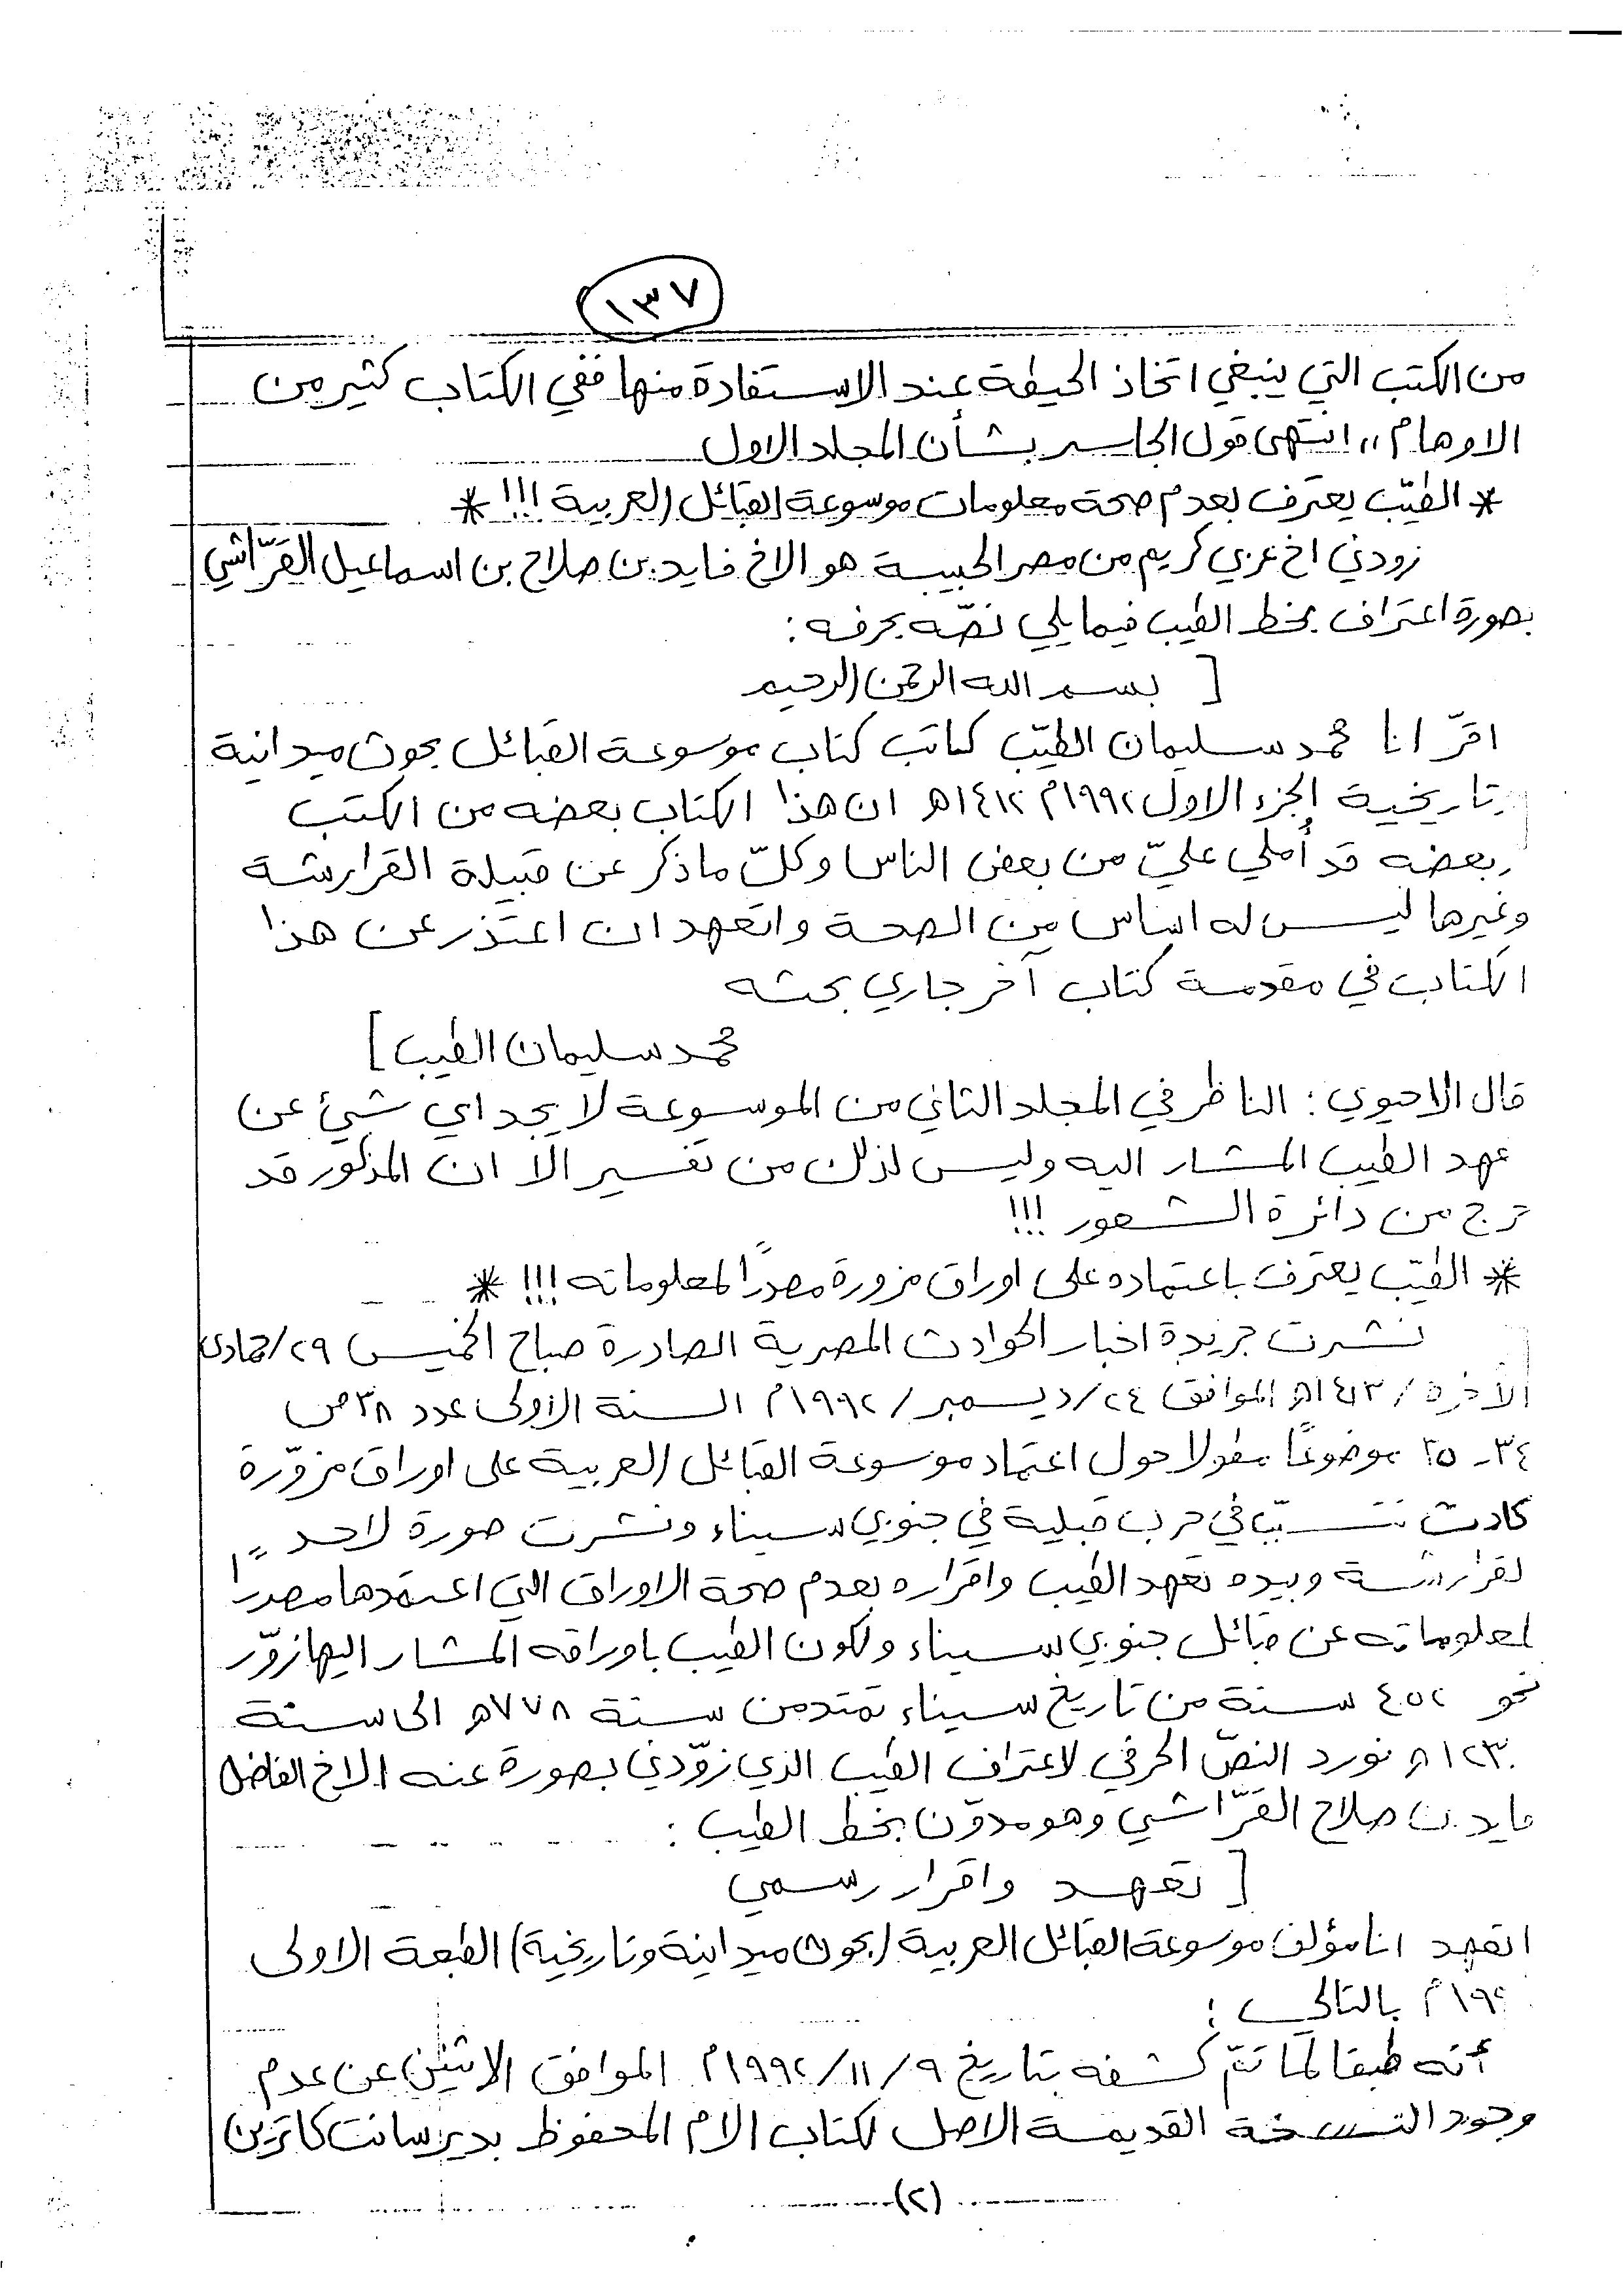 ١٣٧
من الكتب التي ينبغي اتخاذ الحيطة عند الاستفادة منها ففي الكتاب كثير من
الاوهام ,, انتهى قول الجاسر بشأن المجلد الاول
* الطيّب يعترف بعدم صحة معلومات موسوعة القبائل العربية !!! *
زودني اخ عربي كريم من مصر الحبيبة هو الاخ فايد بن صلاح بن اسماعيل القرّاشي
بصورة اعتراف بخط الطيب فيما يلي نصّه بحرفه :
[ بسم الله الرحمن الرحيم
اقرّ انا محمد سليمان الطيّب كاتب كتاب موسوعة القبائل بحوث ميدانية
تاريخية الجزء الاول ١٩٩٢م ١٤١٢هـ ان هذا الكتاب بعضه من الكتب
بعضه قد أُملي عليّ من بعض الناس وكلّ ما ذكر عن قبيلة القرارشة
وغيرها ليس له اساس من الصحة واتعهد ان اعتذر عن هذا
الكتاب في مقدمة كتاب آخر جاري بحثه
محمد سليمان الطيب ]
قال الاحيوي : الناظر في المجلد الثاني من الموسوعة لا يجد اي شيئ عن
عهد الطيب المشار اليه وليس لذلك من تفسير الا ان المذكور قد
خرج من دائرة الشعور !!!
* الطيّب يعترف باعتماده على اوراق مزورة مصدرًا لمعلوماته !!! *
نشرت جريدة اخبار الحوادث المصرية الصادرة صباح الخميس ٢٩/جمادى
الآخرة / ١٤١٣هـ الموافق ٢٤/ديسمبر/١٩٩٢م السنة الاولى عدد ٣٨ ص
٣٤-٣٥ موضوعًا مطولا حول اعتماد موسوعة القبائل العربية على اوراق مزوّرة
كادت تتسبّب في حرب قبلية في جنوبي سيناء ونشرت صورة لاحد
لقرارشة وبيده تعهد الطيب واقراره بعدم صحة الاوراق التي اعتمدها مصدرًا
لمعلوماته عن قبائل جنوبي سيناء ولكون الطيب باوراقه المشار اليها زوّر
نحو ٤٥٢ سنة من تاريخ سيناء تمتد من سنة ٧٧٨هـ الى سنة
١٢٣٠هـ نورد النصّ الحرفي لاعتراف الطيب الذي زوّدني بصورة عنه الاخ الفاضل
فايد بن صلاح القرّاشي وهو مدوّن بخط الطيب :
[ تعهد واقرار رسمي
اتعهد انا مؤلف موسوعة القبائل العربية (بحوث ميدانية وتاريخية) الطبعة الاولى
م بالتالي :
أنه طبقا لما تمّ كشفه بتاريخ ٩/١١/١٩٩٢م الموافق الاثنين عن عدم
وجود النسخة القديمة الاصل لكتاب الام المحفوظ بدير سانت كاترين
(٢)